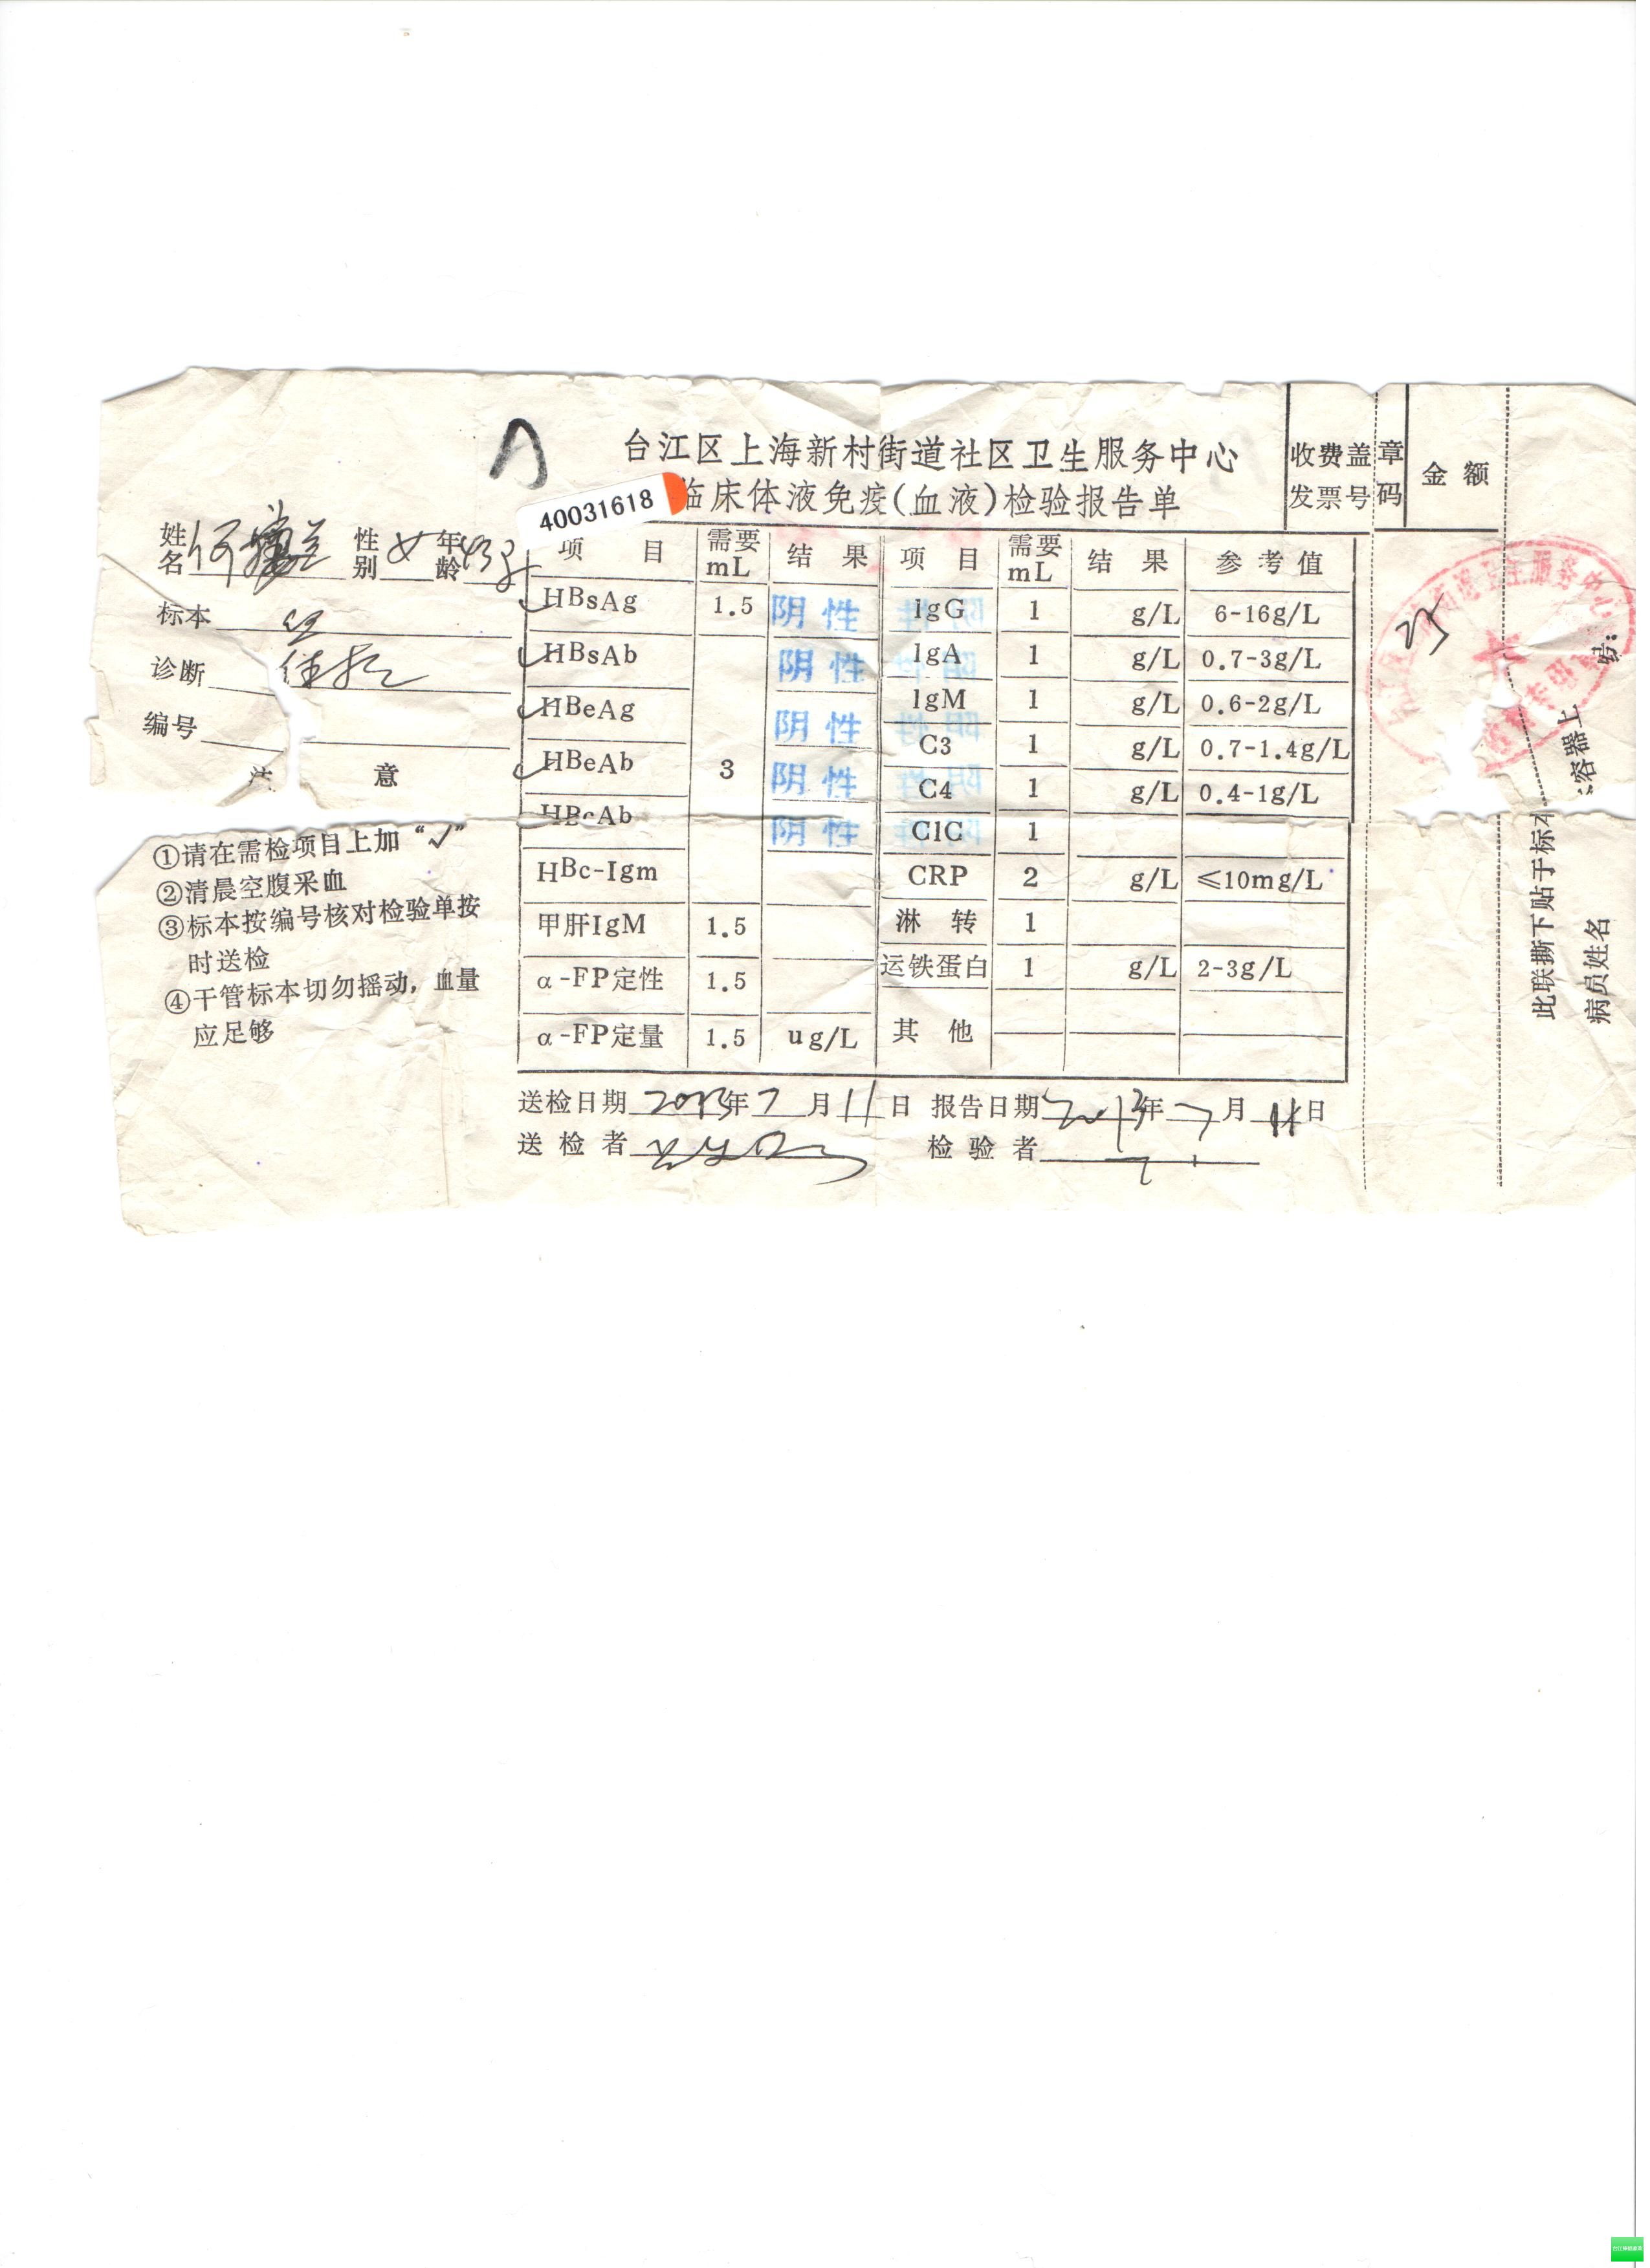 台江区上海新村街道社区卫生服务中心
临床体液免疫(血液)检验报告单
40031618
收费盖章
发票号码
金额
姓名 何 性别 女 年龄 43岁
标本
诊断
编号
注意
①请在需检项目上加“√”
②清晨空腹采血
③标本按编号核对检验单按
时送检
④干管标本切勿摇动，血量
应足够
项目 需要mL 结果 项目 需要mL 结果 参考值
√ HBsAg 1.5 阴性 IgG 1 g/L 6-16g/L
√ HBsAb 阴性 IgA 1 g/L 0.7-3g/L
√ HBeAg 阴性 IgM 1 g/L 0.6-2g/L
√ HBeAb 3 阴性 C3 1 g/L 0.7-1.4g/L
HBcAb 阴性 C4 1 g/L 0.4-1g/L
HBc-Igm CIC 1
甲肝IgM 1.5 CRP 2 g/L ≤10mg/L
α-FP定性 1.5 淋转 1
α-FP定量 1.5 ug/L 运铁蛋白 1 g/L 2-3g/L
其他
送检日期 2013年7月11日 报告日期 2013年7月11日
送检者 检验者
25
街道卫生服务中心
此联撕下贴于标本容器上
病员姓名
号: